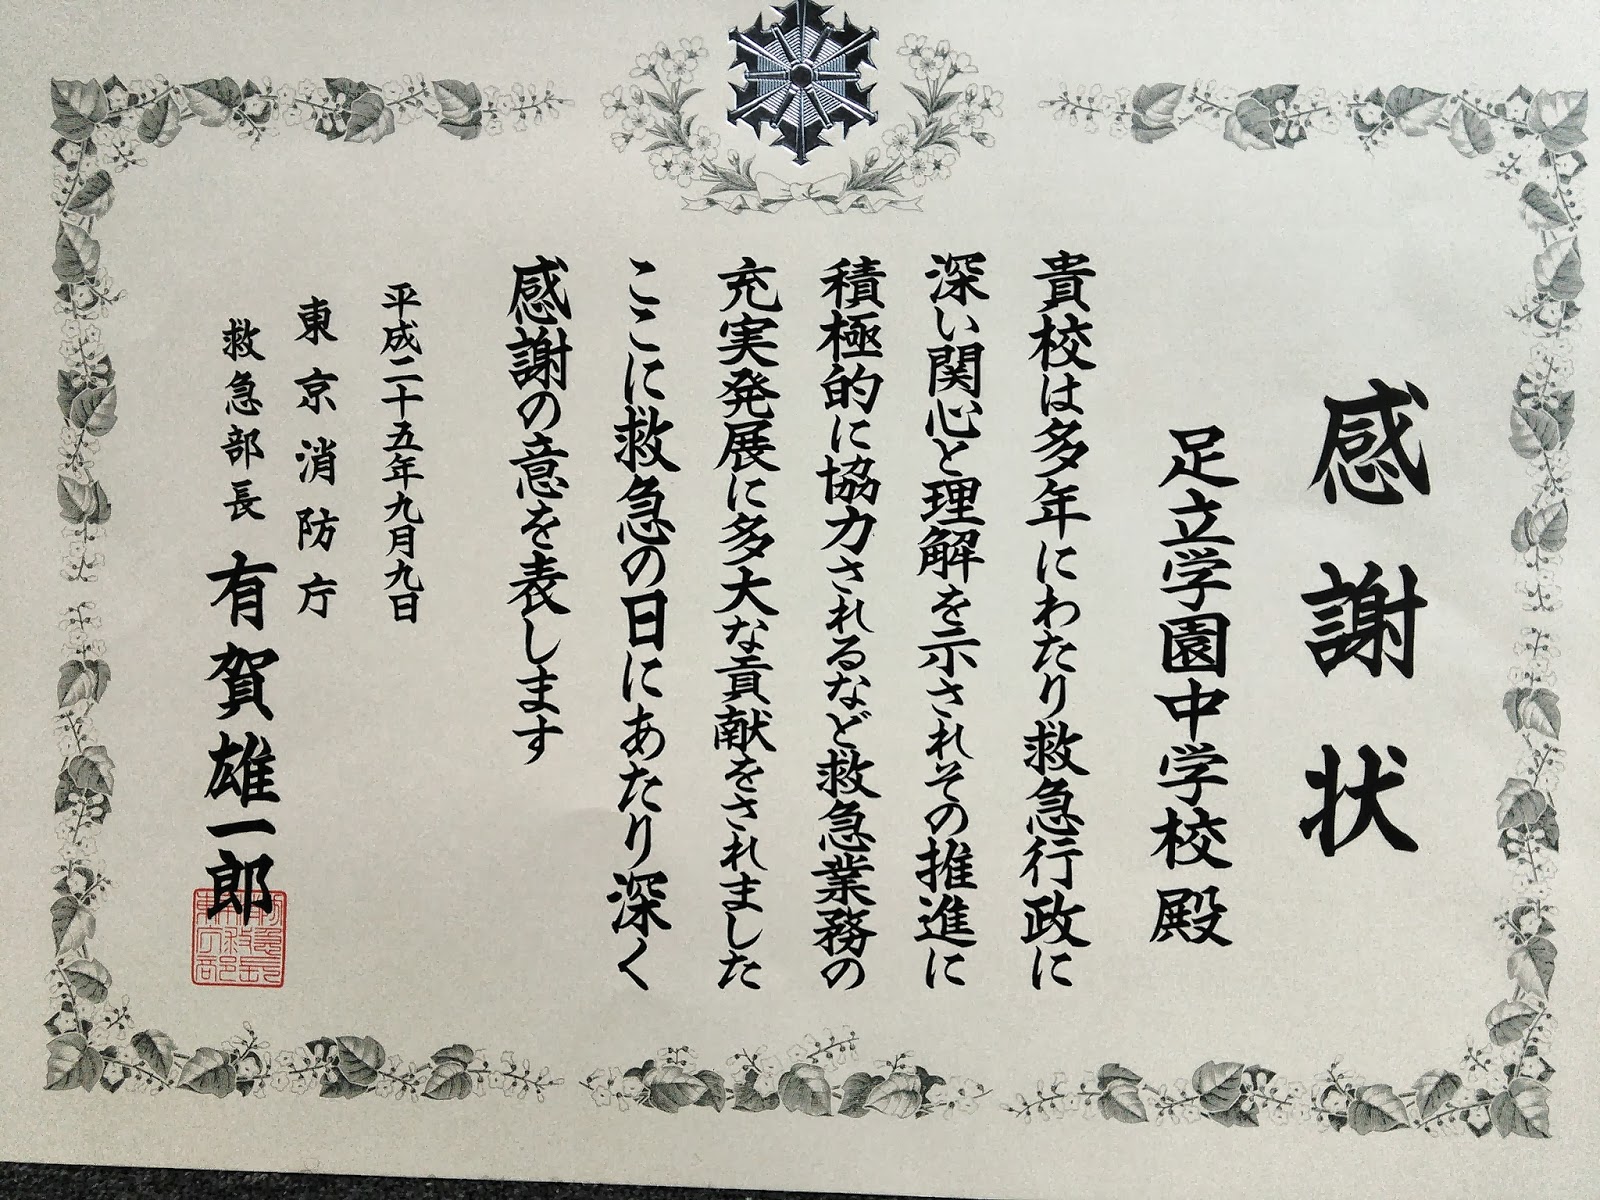 感謝状
足立学園中学校殿
貴校は多年にわたり救急行政に
深い関心と理解を示されその推進に
積極的に協力されるなど救急業務の
充実発展に多大な貢献をされました
ここに救急の日にあたり深く
感謝の意を表します
平成二十五年九月九日
東京消防庁
救急部長 有賀雄一郎